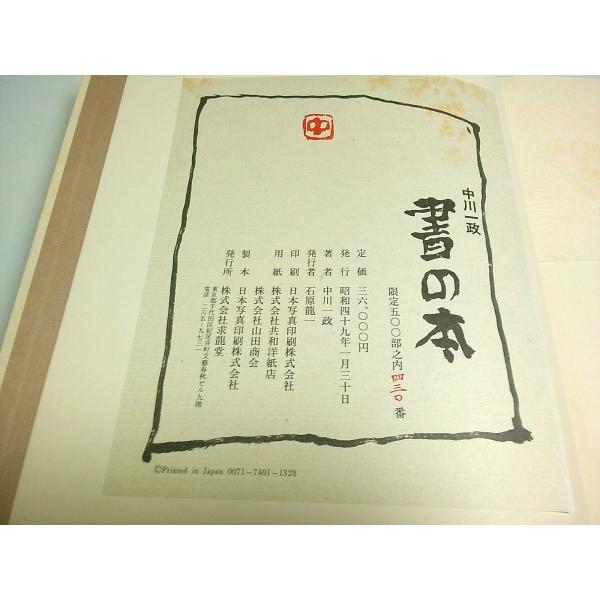 中川一政
書の本
限定五〇〇部之内 四三〇 番
定価 三六、〇〇〇円
発行 昭和四十九年一月三十日
著者 中川一政
発行者 石原龍一
印刷 日本写真印刷株式会社
用紙 株式会社共和洋紙店
株式会社山田商会
製本 日本写真印刷株式会社
発行所 株式会社求龍堂
東京都千代田区紀尾井町文藝春秋ビル九階
電話 二六五—九七三一
中
©Printed in Japan 0071-7401-1328